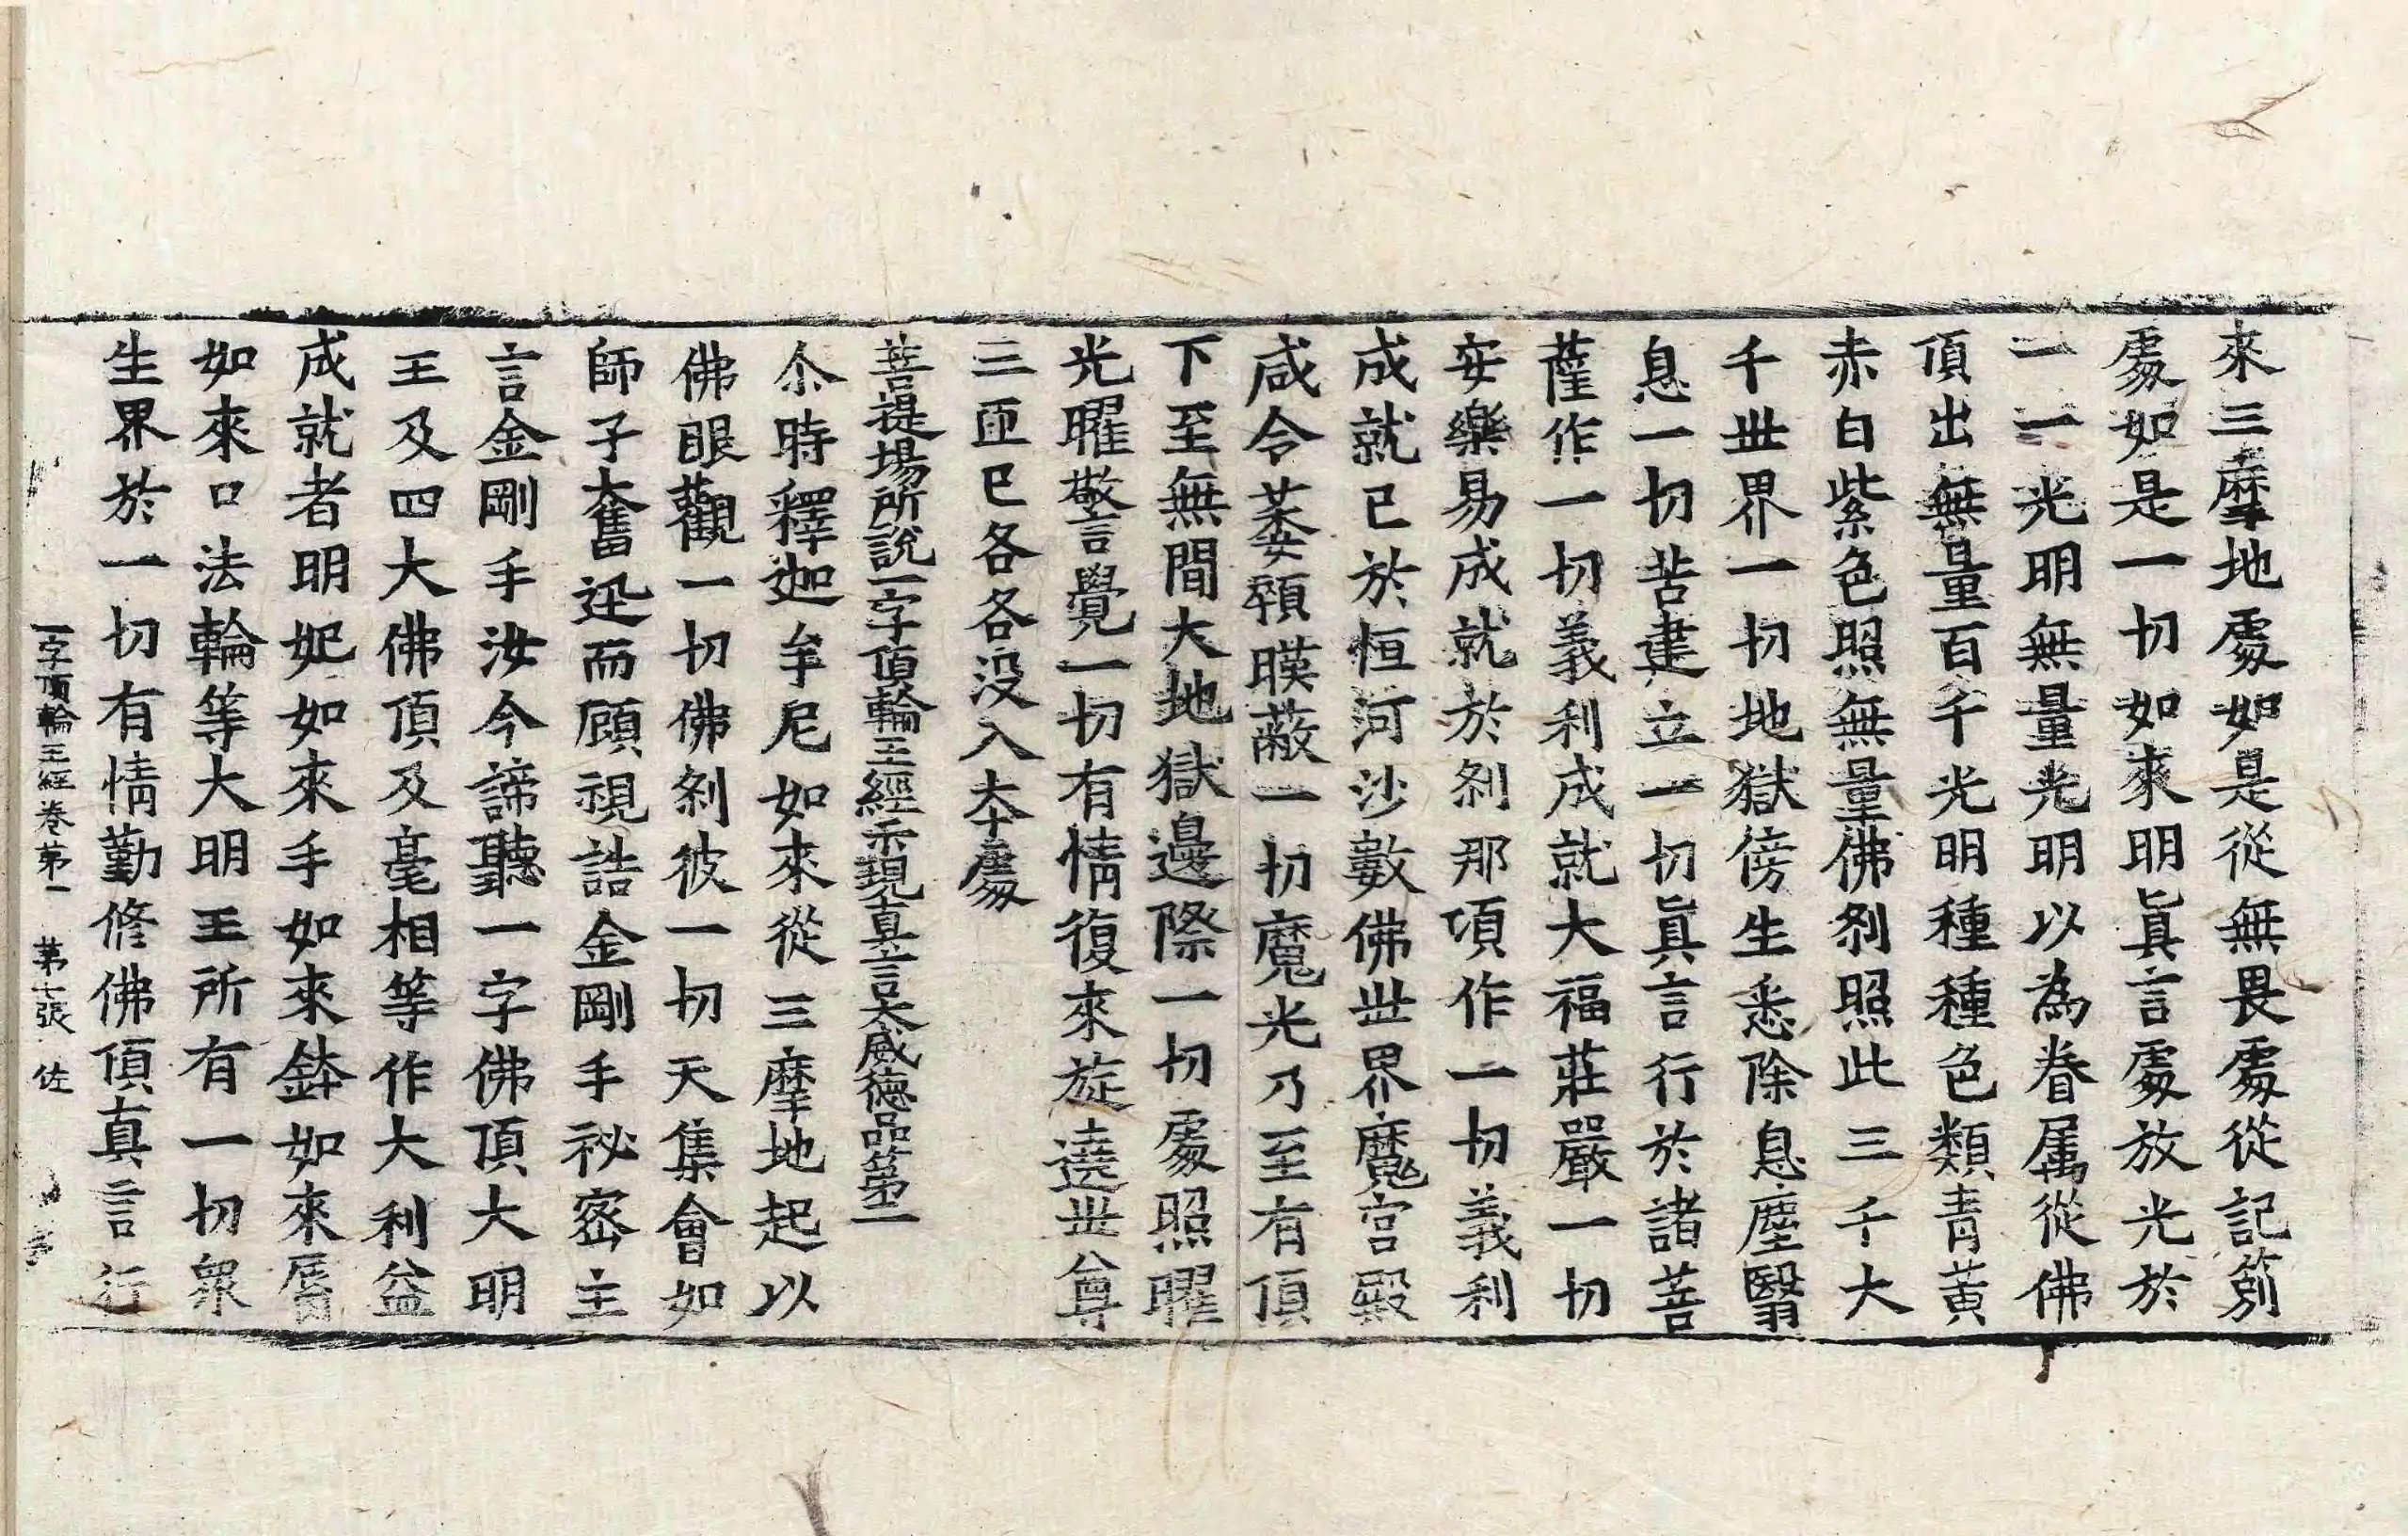 來三摩地處如是從無畏處從記莂
處如是一切如來明眞言處放光於
一一光明無量光明以為眷属從佛
頂出無量百千光明種種色類青黃
赤白紫色照無量佛刹照此三千大
千世界一切地獄傍生悉除息塵翳
息一切苦建立一切眞言行於諸菩
薩作一切義利成就大福莊嚴一切
安樂易成就於刹那頃作一切義利
成就已於恒河沙數佛世界魔宮殿
咸令萎顇暯蔽一切魔光乃至有頂
下至無間大地獄邊際一切處照曜
光曜警覺一切有情復來旋遶世尊
三匝已各各没入本處
菩提場所說一字頂輪王經示現真言大威德品第二
尒時釋迦牟尼如來從三摩地起以
佛眼觀一切佛刹彼一切天集會如
師子奮迅而顧視誥金剛手祕密主
言金剛手汝今諦聽一字佛頂大明
王及四大佛頂及毫相等作大利益
成就者明妃如來手如來鉢如來脣
如來口法輪等大明王所有一切衆
生界於一切有情勤修佛頂真言行
一字頂輪王經卷第一　第七張　佐